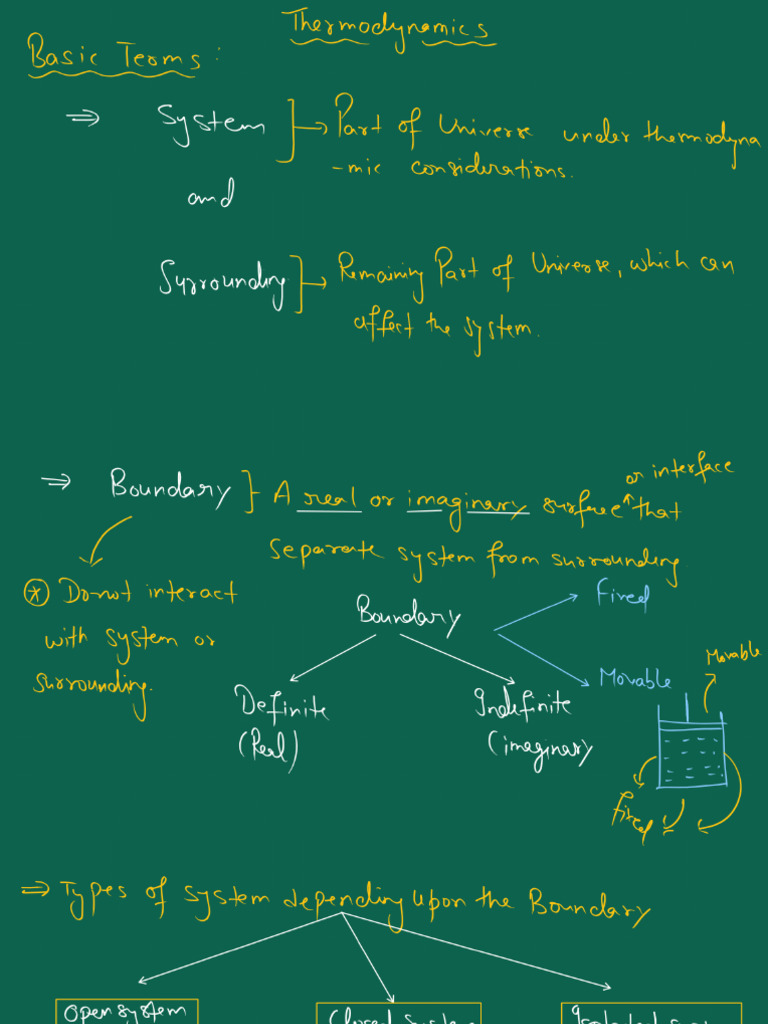 Thermodynamics
Basic Terms:
⇒ System → Part of Universe under thermodyna
-mic considerations.
and
Surrounding → Remaining Part of Universe, which can
affect the system.
⇒ Boundary } A real or imaginary surface or interface that
separate system from surrounding
* Donot interact
with system or
surrounding.
Boundary
Fixed
Movable
Definite
(Real)
Indefinite
(imaginary)
Movable
fixed
⇒ Types of system depending upon the Boundary
Open system
Closed system
Isolated